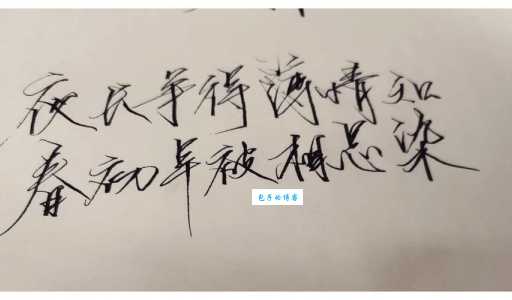 夜长争得薄情知
春初早被相思染
包子的博客